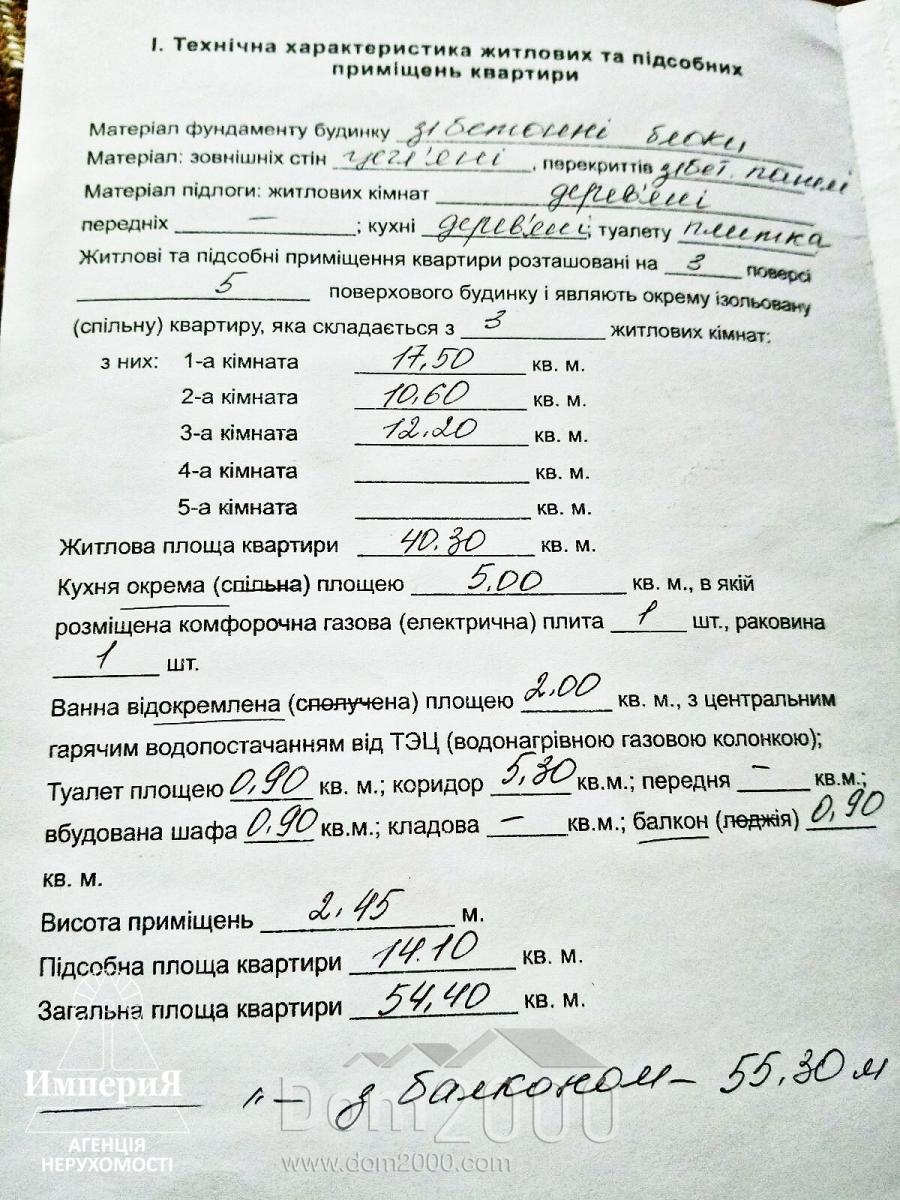 I. Технічна характеристика житлових та підсобних
приміщень квартири
Матеріал фундаменту будинку з/бетонні блоки
Матеріал: зовнішніх стін цегл'яні, перекриттів з/бет. панелі
Матеріал підлоги: житлових кімнат дерев'яні
передніх — ; кухні дерев'яні; туалету плитка
Житлові та підсобні приміщення квартири розташовані на 3 поверсі
5 поверхового будинку і являють окрему ізольовану
(спільну) квартиру, яка складається з 3 житлових кімнат:
з них: 1-а кімната 17,50 кв. м.
2-а кімната 10,60 кв. м.
3-а кімната 12.20 кв. м.
4-а кімната кв. м.
5-а кімната кв. м.
Житлова площа квартири 40.30 кв. м.
Кухня окрема (спільна) площею 5,00 кв. м., в якій
розміщена комфорочна газова (електрична) плита 1 шт., раковина
1 шт.
Ванна відокремлена (сполучена) площею 2.00 кв. м., з центральним
гарячим водопостачанням від ТЭЦ (водонагрівною газовою колонкою);
Туалет площею 0,90 кв. м.; коридор 5,30 кв.м.; передня — кв.м.;
вбудована шафа 0,90 кв.м.; кладова — кв.м.; балкон (лоджія) 0,90
кв. м.
Висота приміщень 2.45 м.
Підсобна площа квартири 14.10 кв. м.
Загальна площа квартири 54,40 кв. м.
—— „— з балконом – 55,30 м
ИмпериЯ
АГЕНЦІЯ
НЕРУХОМОСТІ
Dom2000
www.dom2000.com